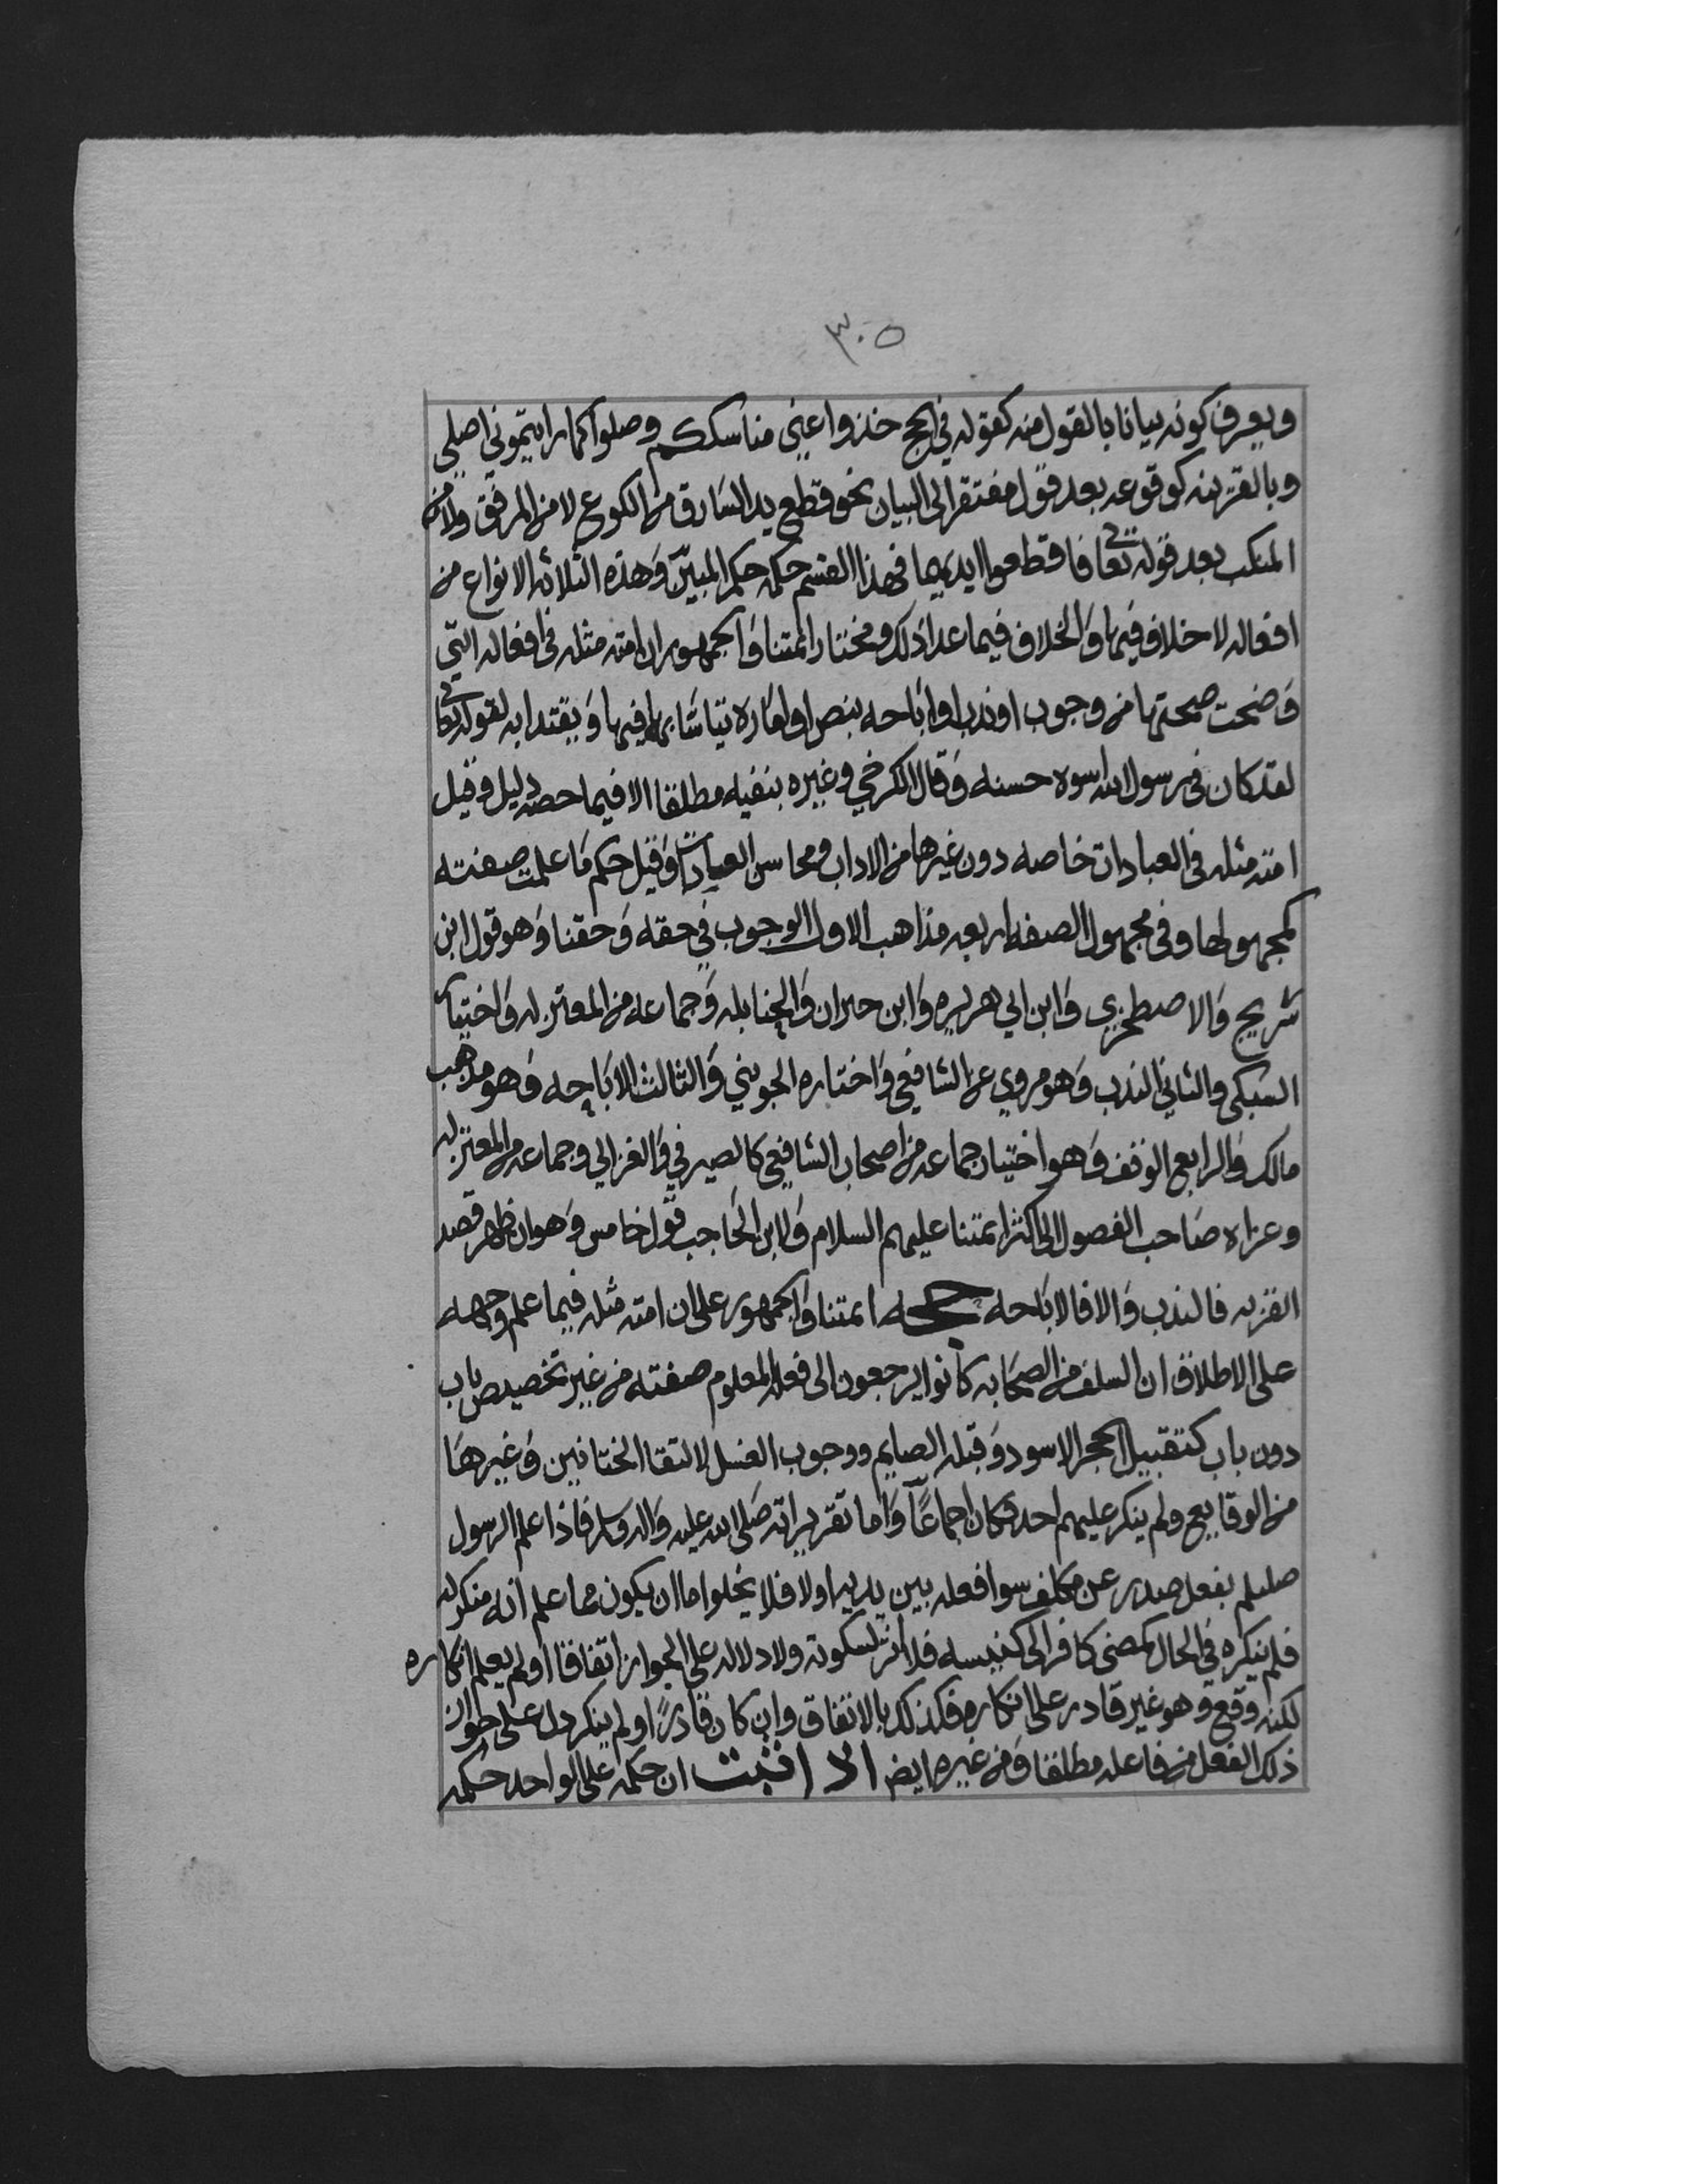 ٣٠٥
ويعرف كونه بيانا بالقول منه كقوله في الحج خذوا عني مناسككم وصلوا كما رايتموني اصلي
وبالقرينه كوقوعه بعد قول مفتقر الى البيان نحو قطع يد السارق من الكوع لا من المرفق ولا من
المنكب بعد قوله تعالى فاقطعوا ايديهما فهذا القسم حكمه حكم المبيّن وهذه الثلاثه الانواع من
افعاله لا خلاف فيها والخلاف فيما عدا ذلك ومختار ائمتنا والجمهور ان امته مثله في افعاله التي
وضحت صحتها من وجوب او ندب او اباحه بنص او اماره تياسًا به فيها ويقتدا به لقوله تعالى
لقد كان في رسول الله اسوه حسنه وقال الكرخي وغيره بنفيه مطلقا الا فيما خصه دليل وقيل
امته مثله في العبادات خاصه دون غيرها من الاداب ومحاسن العبادات وقيل حكم ما علمت صفته
كمجهولها وفي مجهول الصفه اربعه مذاهب الاول الوجوب في حقه وحقنا وهو قول ابن
شريح والاصطخري وابن ابي هريره وابن حيران والحنابله وجماعه من المعتزله واختيار
السبكي والثاني الندب وهو مروي عن الشافعي واختاره الجويني والثالث الاباحه وهو مذهب
مالك والرابع الوقف وهو اختيار جماعه من اصحاب الشافعي كالصيرفي والغزالي وجماعه من المعتزله
وعزاه صاحب الفصول الى اكثر ائمتنا عليهم السلام ولابن الحاجب قول خامس وهو ان ظهر قصد
القربه فالندب والا فالاباحه حجه ائمتنا والجمهور على ان امته مثله فيما علم وجهه
على الاطلاق ان السلف من الصحابه كانوا يرجعون الى فعله المعلوم صفته من غير تخصيص باب
دون باب كتقبيل الحجر الاسود وقبله الصايم ووجوب الغسل لالتقا الختانين وغيرها
من الوقايع ولم ينكر عليهم احد فكان اجماعًا واما تقريراته صلى الله عليه واله وسلم فاذا علم الرسول
صللم بفعل صدر عن مكلف سوا فعله بين يديه او لا فلا يخلوا اما ان يكون مما علم انه منكر له
فلم ينكره في الحال كمضي كافر الى كنيسه فلا اثر لسكوته ولا دلاله على الجواز اتفاقا او لم يعلم انكاره
لكنه وقع وهو غير قادر على انكاره فكذلك بالاتفاق وان كان قادرًا ولم ينكر دل على جواز
ذلك الفعل من فاعله مطلقا ومن غيره ايضا اذا ثبت ان حكمه على الواحد حكمه